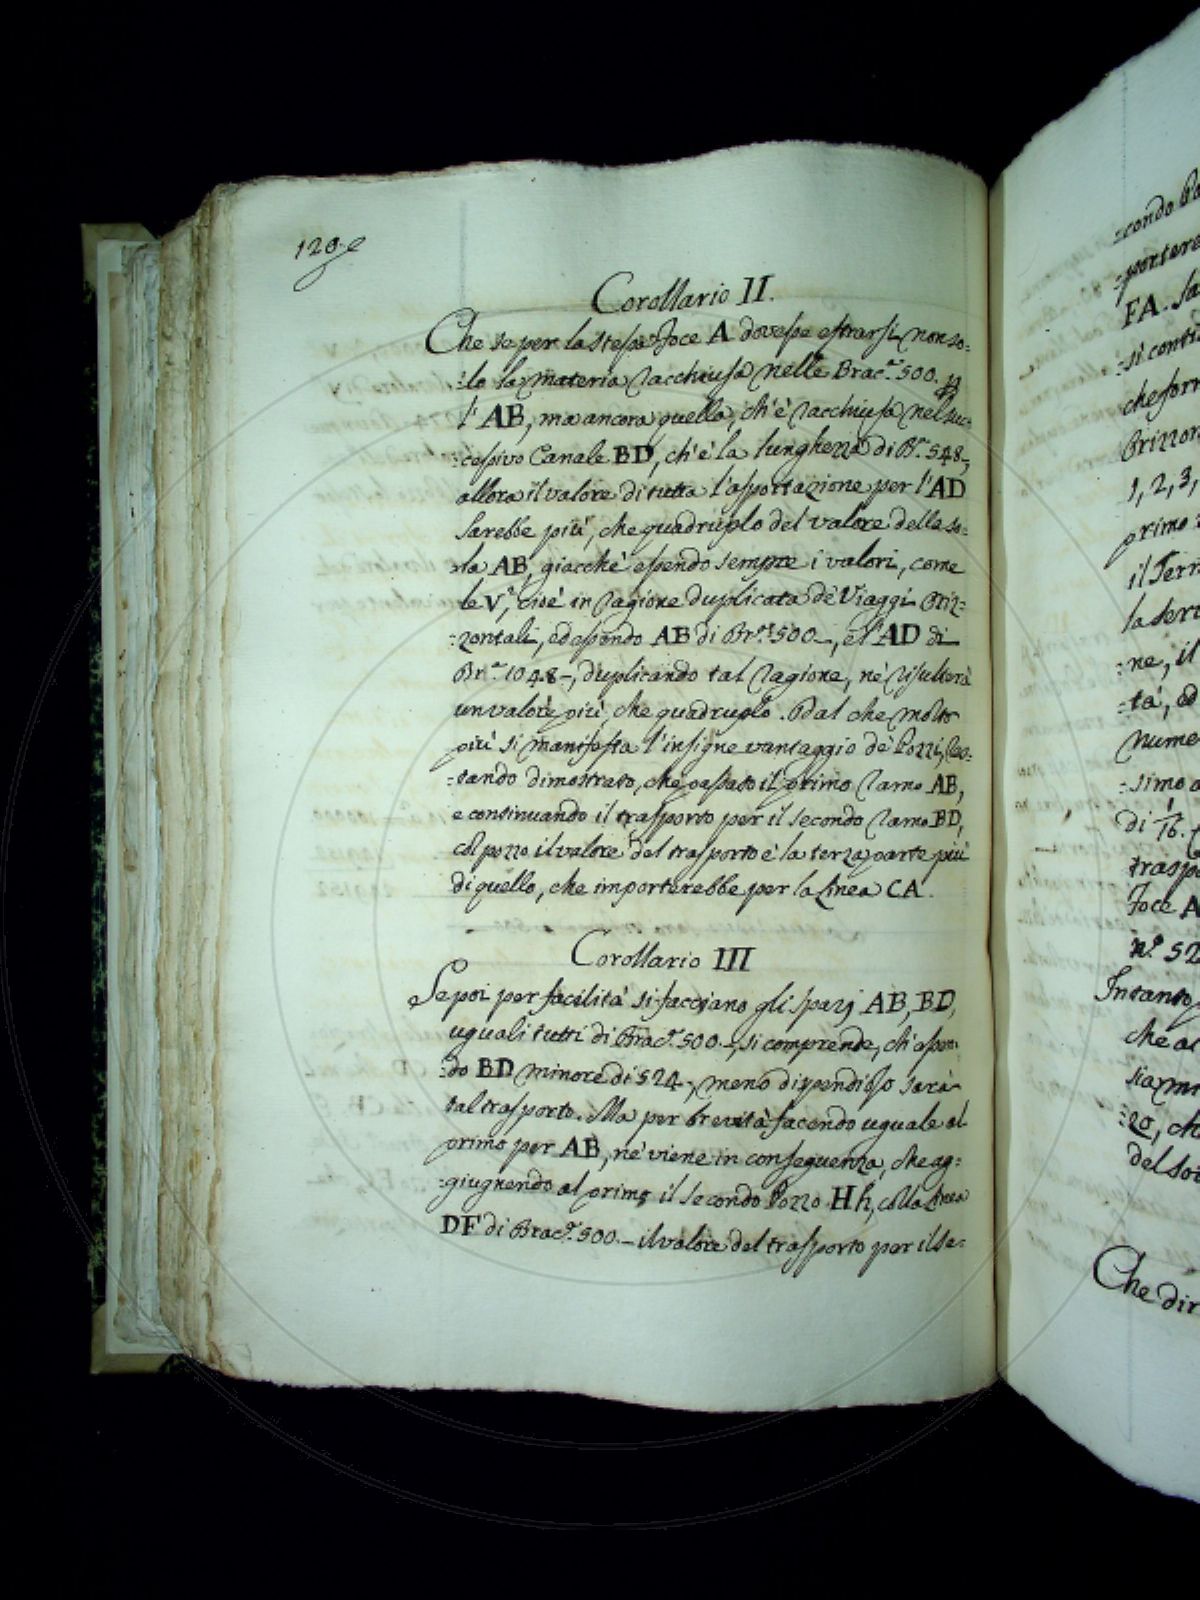 120
Corollario II.
Che se per la stessa Foce A dovesse estrarsi non so:
:lo la materia racchiusa nelle Brac.ª 500. p
l'AB, ma ancora quella, ch'è racchiusa nel suc:
:cessivo Canale BD, ch'è la lunghezza di Br.ª 548,
allora il valore di tutta l'asportazione per l'AD
sarebbe più, che quadruplo del valore della so:
:la AB, giacchè essendo sempre i valori, come
le V.ª, cioè in ragione duplicata de' Viaggi Oriz:
:zontali, ed essendo AB di Br.ª 500 -, e l'AD di
Br.ª 1048 -, duplicando tal ragione, nè risulterà
un valore più, che quadruplo. Dal che molto
più si manifesta l'insigne vantaggio de' Pozzi, res:
:tando dimostrato, che passato il primo ramo AB,
e continuando il trasporto per il secondo ramo BD,
col pozzo il valore del trasporto è la terza parte più
di quello, che importerebbe per la Linea CA.
Corollario III
Se poi per facilità si facciano gli spazj AB, BD,
uguali tutti di Brac.ª 500 -, si comprende, ch'essen:
:do BD minore di 524 -, meno dispendioso sarà
tal trasporto. Ma per brevità facendo uguale al
primo per AB, nè viene in conseguenza, che ag:
:giugnendo al primo il secondo Pozzo Hh, colla Linea
DF di Brac.ª 500. - il valore del trasporto per il se:
:condo
:portere
FA. Sa
:si conti
che for
Orizzon
1, 2, 3,
primo
il Terr
la
:ne, il
:tà, ed
nume
:simo
di 16.
traspo
Foce A
n.º 52
Intanto
che al
sia
:zo, ch
del
Che dir